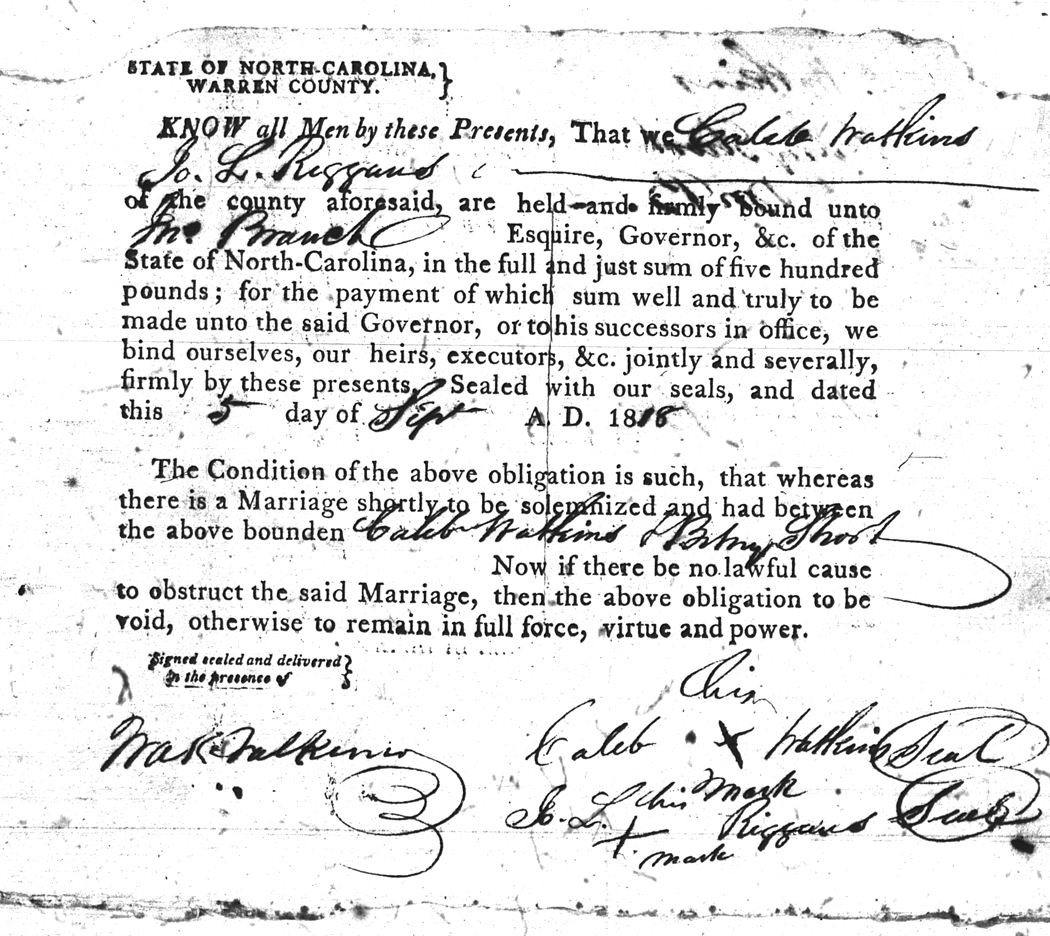 STATE OF NORTH-CAROLINA,
WARREN COUNTY.
KNOW all Men by these Presents, That we Caleb Watkins
Jo. L. Riggans
of the county aforesaid, are held and firmly bound unto
Jno Branch Esquire, Governor, &c. of the
State of North-Carolina, in the full and just sum of five hundred
pounds; for the payment of which sum well and truly to be
made unto the said Governor, or to his successors in office, we
bind ourselves, our heirs, executors, &c. jointly and severally,
firmly by these presents. Sealed with our seals, and dated
this 5 day of Sept A. D. 1818
The Condition of the above obligation is such, that whereas
there is a Marriage shortly to be solemnized and had between
the above bounden Caleb Watkins & Betsy Short
Now if there be no lawful cause
to obstruct the said Marriage, then the above obligation to be
void, otherwise to remain in full force, virtue and power.
Signed sealed and delivered
in the presence of
his
Caleb X Watkins Seal
Watkins
his mark
Jo. L. + Riggans Seal
mark